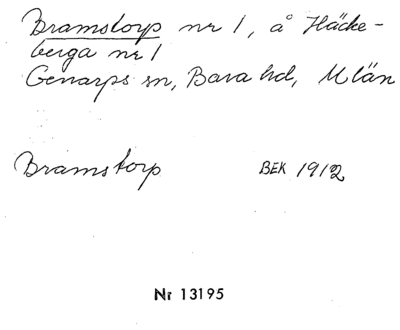 Bramstorp nr 1, å Häcke-
berga nr 1
Genarps sn, Bara hd, M län
Bramstorp BEK 1912
Nr 13195